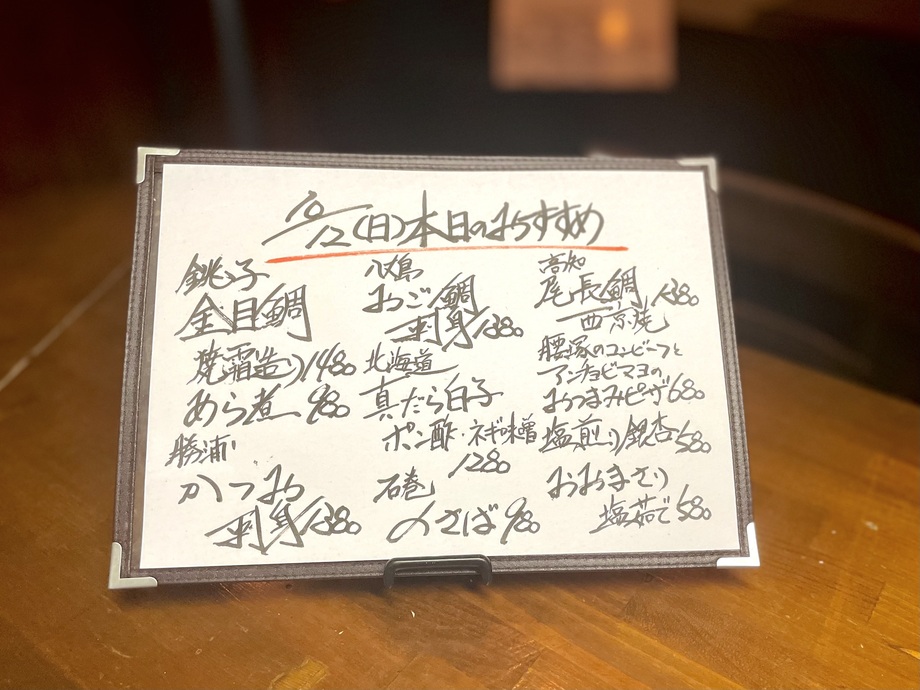 10/12(日)本日のおすすめ
銚子
金目鯛
焼霜造り1480
あら煮 980
勝浦
かつお
刺身1380
八丈島
おご鯛
刺身1380
北海道
真だら白子
ポン酢・ネギ味噌
1280
石巻
〆さば980
高知
尾長鯛1380
西京焼
腰塚のコンビーフと
アンチョビマヨの
おつまみピザ680
塩煎り銀杏580
おおまさり
塩茹で580